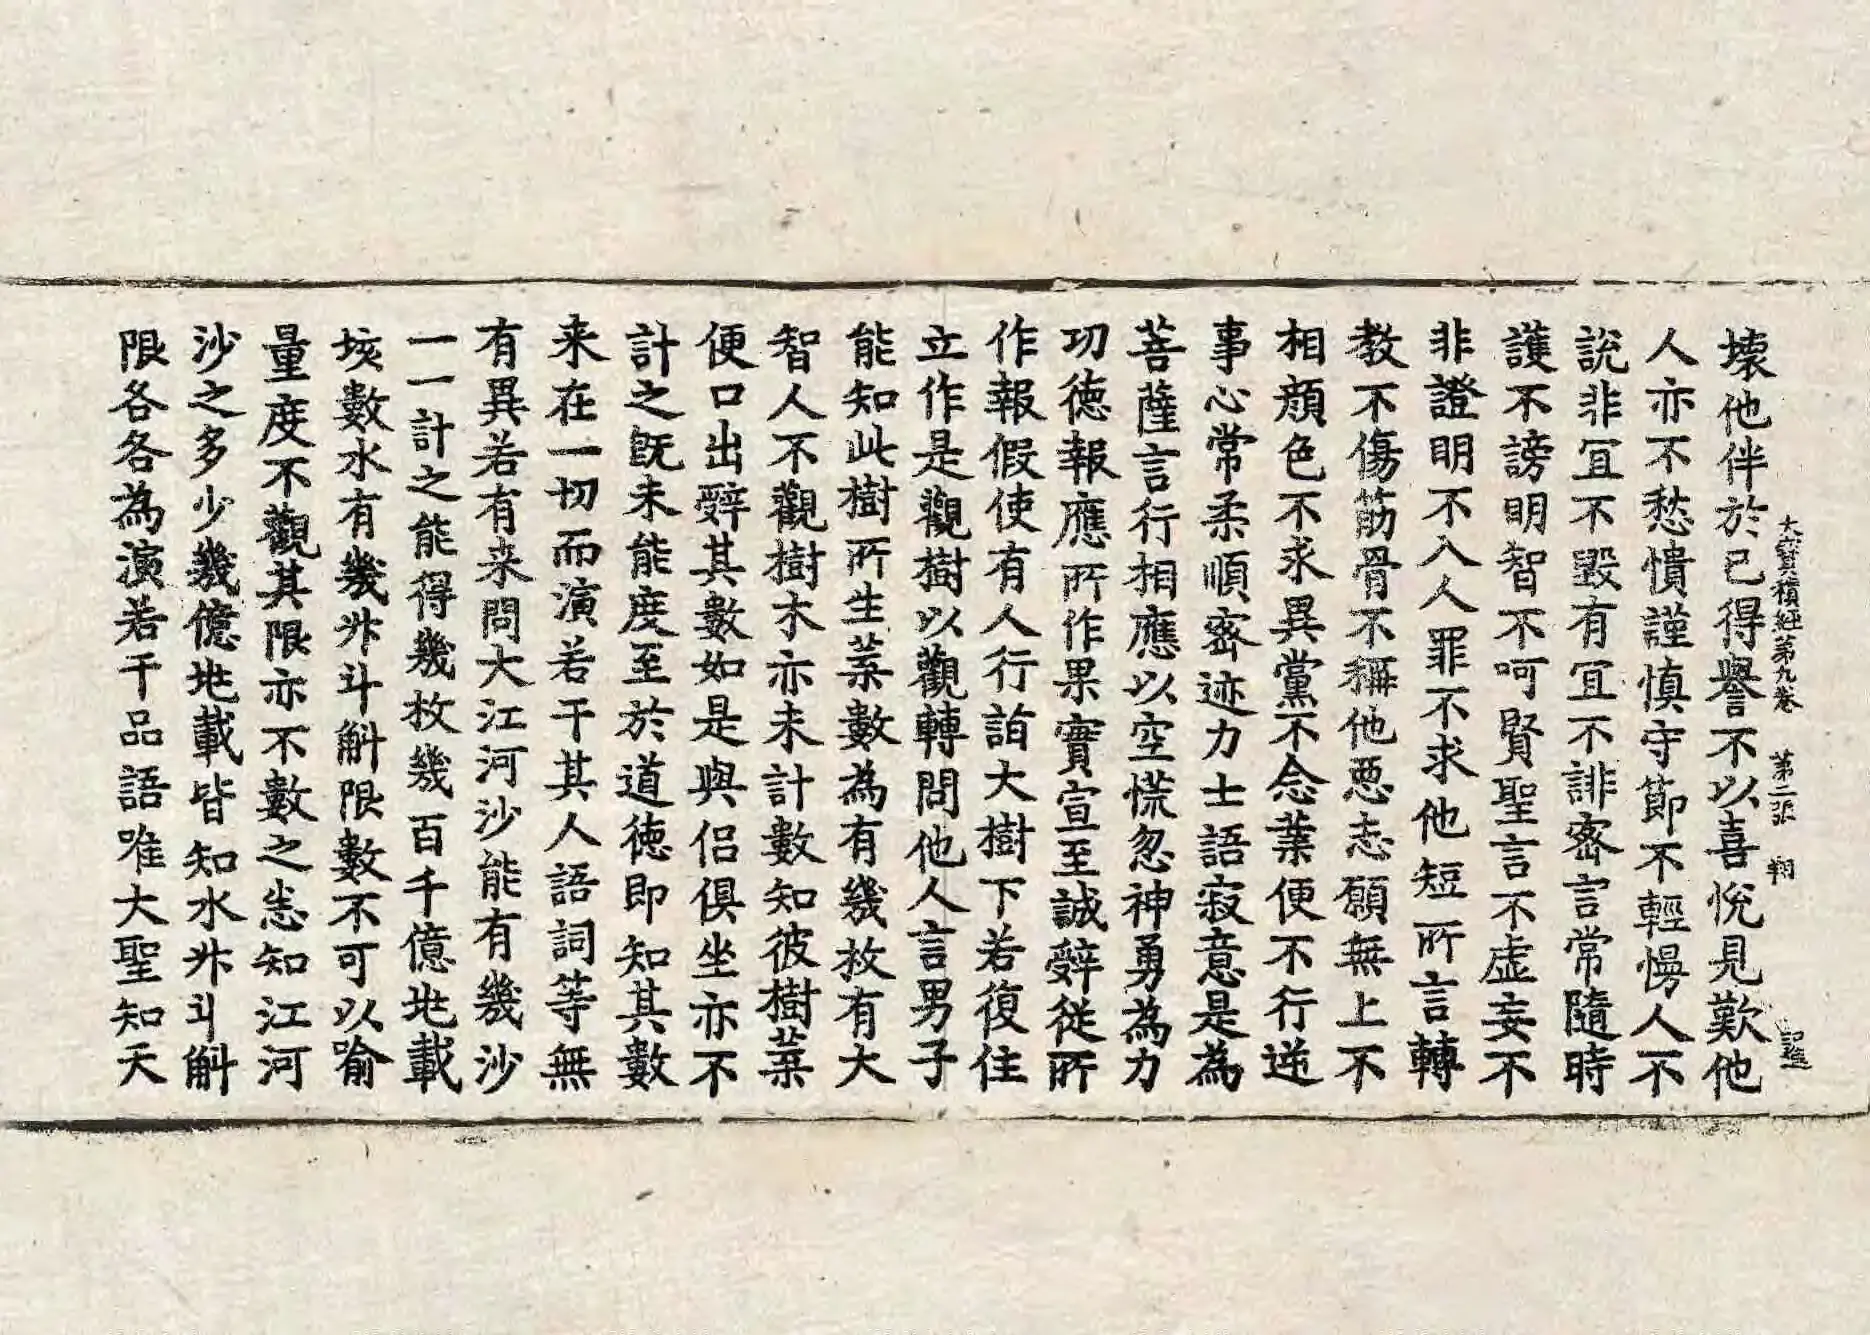 大寶積經第九卷 第二張 翔
壞他伴於已得譽不以喜悅見歎他
人亦不愁憒謹慎守節不輕慢人不
說非冝不毀有冝不誹密言常隨時
護不謗明智不呵賢聖言不虛妄不
非證明不入人罪不求他短所言轉
教不傷筋骨不稱他惡志願無上不
相顏色不求異黨不念業便不行逆
事心常柔順密迹力士語寂意是為
菩薩言行相應以空慌忽神勇為力
功德報應所作果實宣至誠辤從所
作報假使有人行詣大樹下若復住
立作是觀樹以觀轉問他人言男子
能知此樹所生葉數為有幾枚有大
智人不觀樹木亦未計數知彼樹葉
便口出辤其數如是與侣俱坐亦不
計之旣未能度至於道德即知其數
来在一切而演若干其人語詞等無
有異若有来問大江河沙能有幾沙
一一計之能得幾枚幾百千億地載
垓數水有幾升斗斛限數不可以喻
量度不觀其限亦不數之悉知江河
沙之多少幾億地載皆知水升斗斛
限各各為演若干品語唯大聖知天